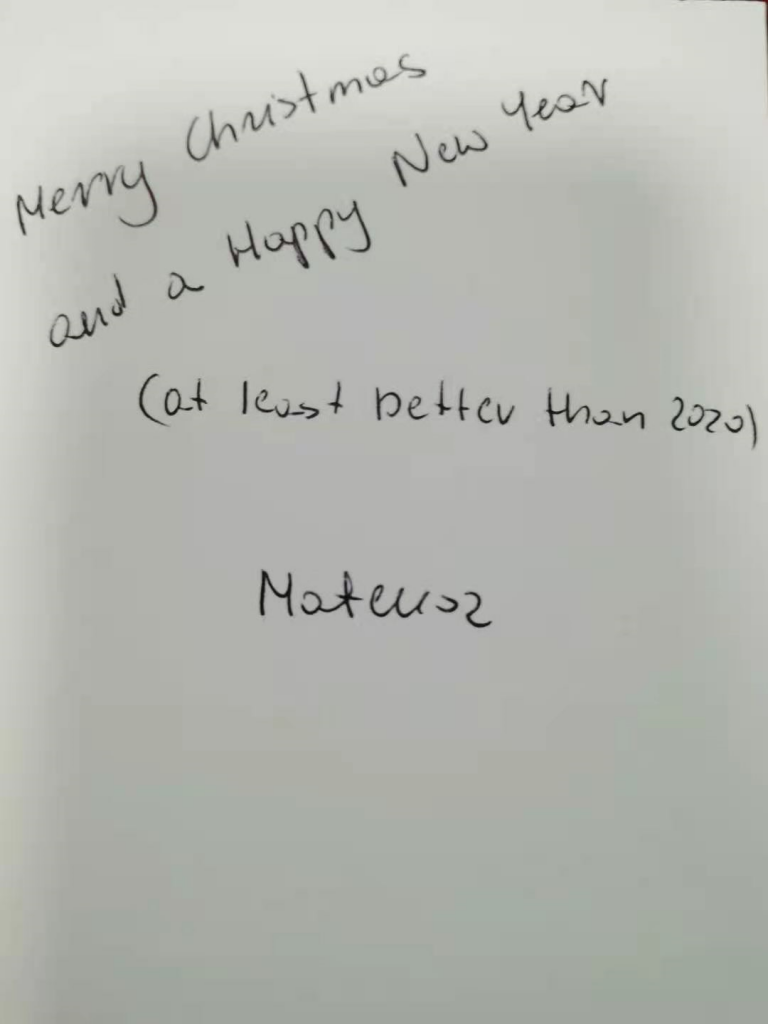 Merry Christmas
and a Happy New Year
(at least better than 2020)
Mateusz